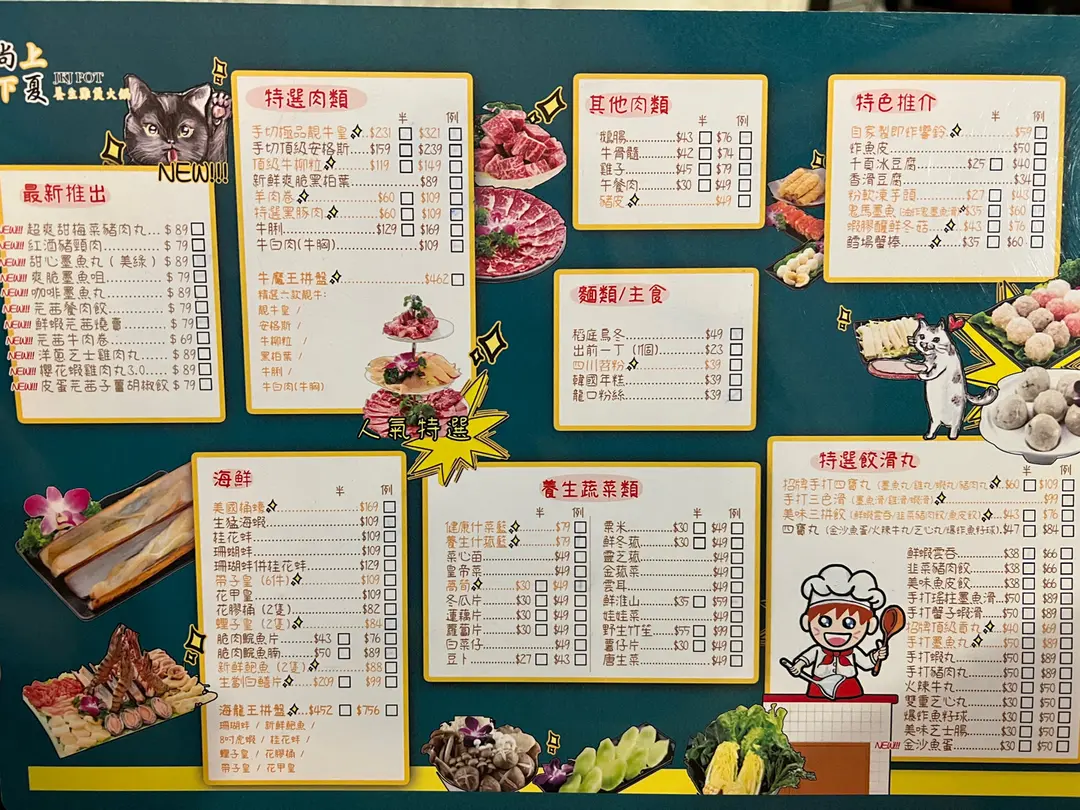 尚上
下夏
IKI POT
養生雞煲火鍋
NEW!!!
最新推出
NEW!!! 超爽甜梅菜豬肉丸...$89
NEW!!! 紅酒豬頸肉...$79
NEW!!! 甜心墨魚丸(美綠)$89
NEW!!! 爽脆墨魚咀...$79
NEW!!! 咖啡墨魚丸...$89
NEW!!! 芫茜餐肉餃...$79
NEW!!! 鮮蝦芫茜燒賣...$79
NEW!!! 芫茜牛肉卷...$69
NEW!!! 洋蔥芝士雞肉丸...$89
NEW!!! 櫻花蝦雞肉丸3.0...$89
NEW!!! 皮蛋芫茜子薑胡椒餃$79
特選肉類
半 例
手切極品靚牛皇...$231 $321
手切頂級安格斯...$159 $239
頂級牛柳粒...$119 $149
新鮮爽脆黑柏葉...$89
羊肉卷...$60 $109
特選黑豚肉...$60 $109
牛脷...$129 $169
牛白肉(牛胸)...$109
牛魔王拼盤...$462
精選六款靚牛:
靚牛皇 /
安格斯 /
牛柳粒 /
黑柏葉 /
牛脷 /
牛白肉(牛胸)
人氣特選
其他肉類
半 例
鵝腸...$43 $76
牛骨髓...$42 $74
雞子...$45 $79
午餐肉...$30 $49
豬皮...$49
麵類/主食
稻庭烏冬...$49
出前一丁(1個)...$23
四川苕粉...$39
韓國年糕...$39
龍口粉絲...$39
特色推介
半 例
自家製即炸響鈴...$59
炸魚皮...$50
千頁冰豆腐...$25 $40
香滑豆腐...$34
粉軟凍芋頭...$27 $43
鬼馬墨魚(油炸鬼墨魚滑)$35 $60
蝦膠釀鮮冬菇...$43 $76
鱈場蟹棒...$35 $60
海鮮
半 例
美國桶蠔...$169
生猛海蝦...$109
桂花蚌...$109
珊瑚蚌...$109
珊瑚蚌併桂花蚌...$129
帶子皇(6件)...$109
花甲皇...$109
花膠桶(2隻)...$82
蟶子皇(2隻)...$84
脆肉鯇魚片...$43 $76
脆肉鯇魚腩...$50 $89
新鮮鮑魚(2隻)...$88
生劏白鱔片...$209 $99
海龍王拼盤...$452 $756
珊瑚蚌 / 新鮮鮑魚 /
8吋虎蝦 / 桂花蚌 /
蟶子皇 / 花膠桶 /
帶子皇 / 花甲皇
養生蔬菜類
半 例
健康什菜籃...$79
養生什菇籃...$79
菜心苗...$49
皇帝菜...$49
萵筍...$30 $49
冬瓜片...$30 $49
蓮藕片...$30 $49
蘿蔔片...$30 $49
白菜仔...$49
豆卜...$27 $43
半 例
粟米...$30 $49
鮮冬菇...$30 $49
靈芝菇...$49
金菇菜...$49
雲耳...$49
鮮淮山...$35 $59
娃娃菜...$49
野生竹笙...$55 $99
薯仔片...$30 $49
唐生菜...$49
特選餃滑丸
半 例
招牌手打四寶丸(墨魚丸/雞丸/蝦丸/豬肉丸)$60 $109
手打三色滑(墨魚滑/雞滑/蝦滑)...$99
美味三拼餃(鮮蝦雲吞/韭菜豬肉餃/魚皮餃)$43 $76
四寶丸(金沙魚蛋/火辣牛丸/芝心丸/爆炸魚籽球)$47 $84
鮮蝦雲吞...$38 $66
韭菜豬肉餃...$38 $66
美味魚皮餃...$38 $66
手打瑤柱墨魚滑...$50 $89
手打蟹子蝦滑...$50 $89
招牌頂級貢丸...$40 $69
手打墨魚丸...$50 $89
手打蝦丸...$50 $89
手打豬肉丸...$50 $89
火辣牛丸...$30 $50
雙重芝心丸...$30 $50
爆炸魚籽球...$30 $50
美味芝士腸...$30 $50
NEW!!! 金沙魚蛋...$30 $50